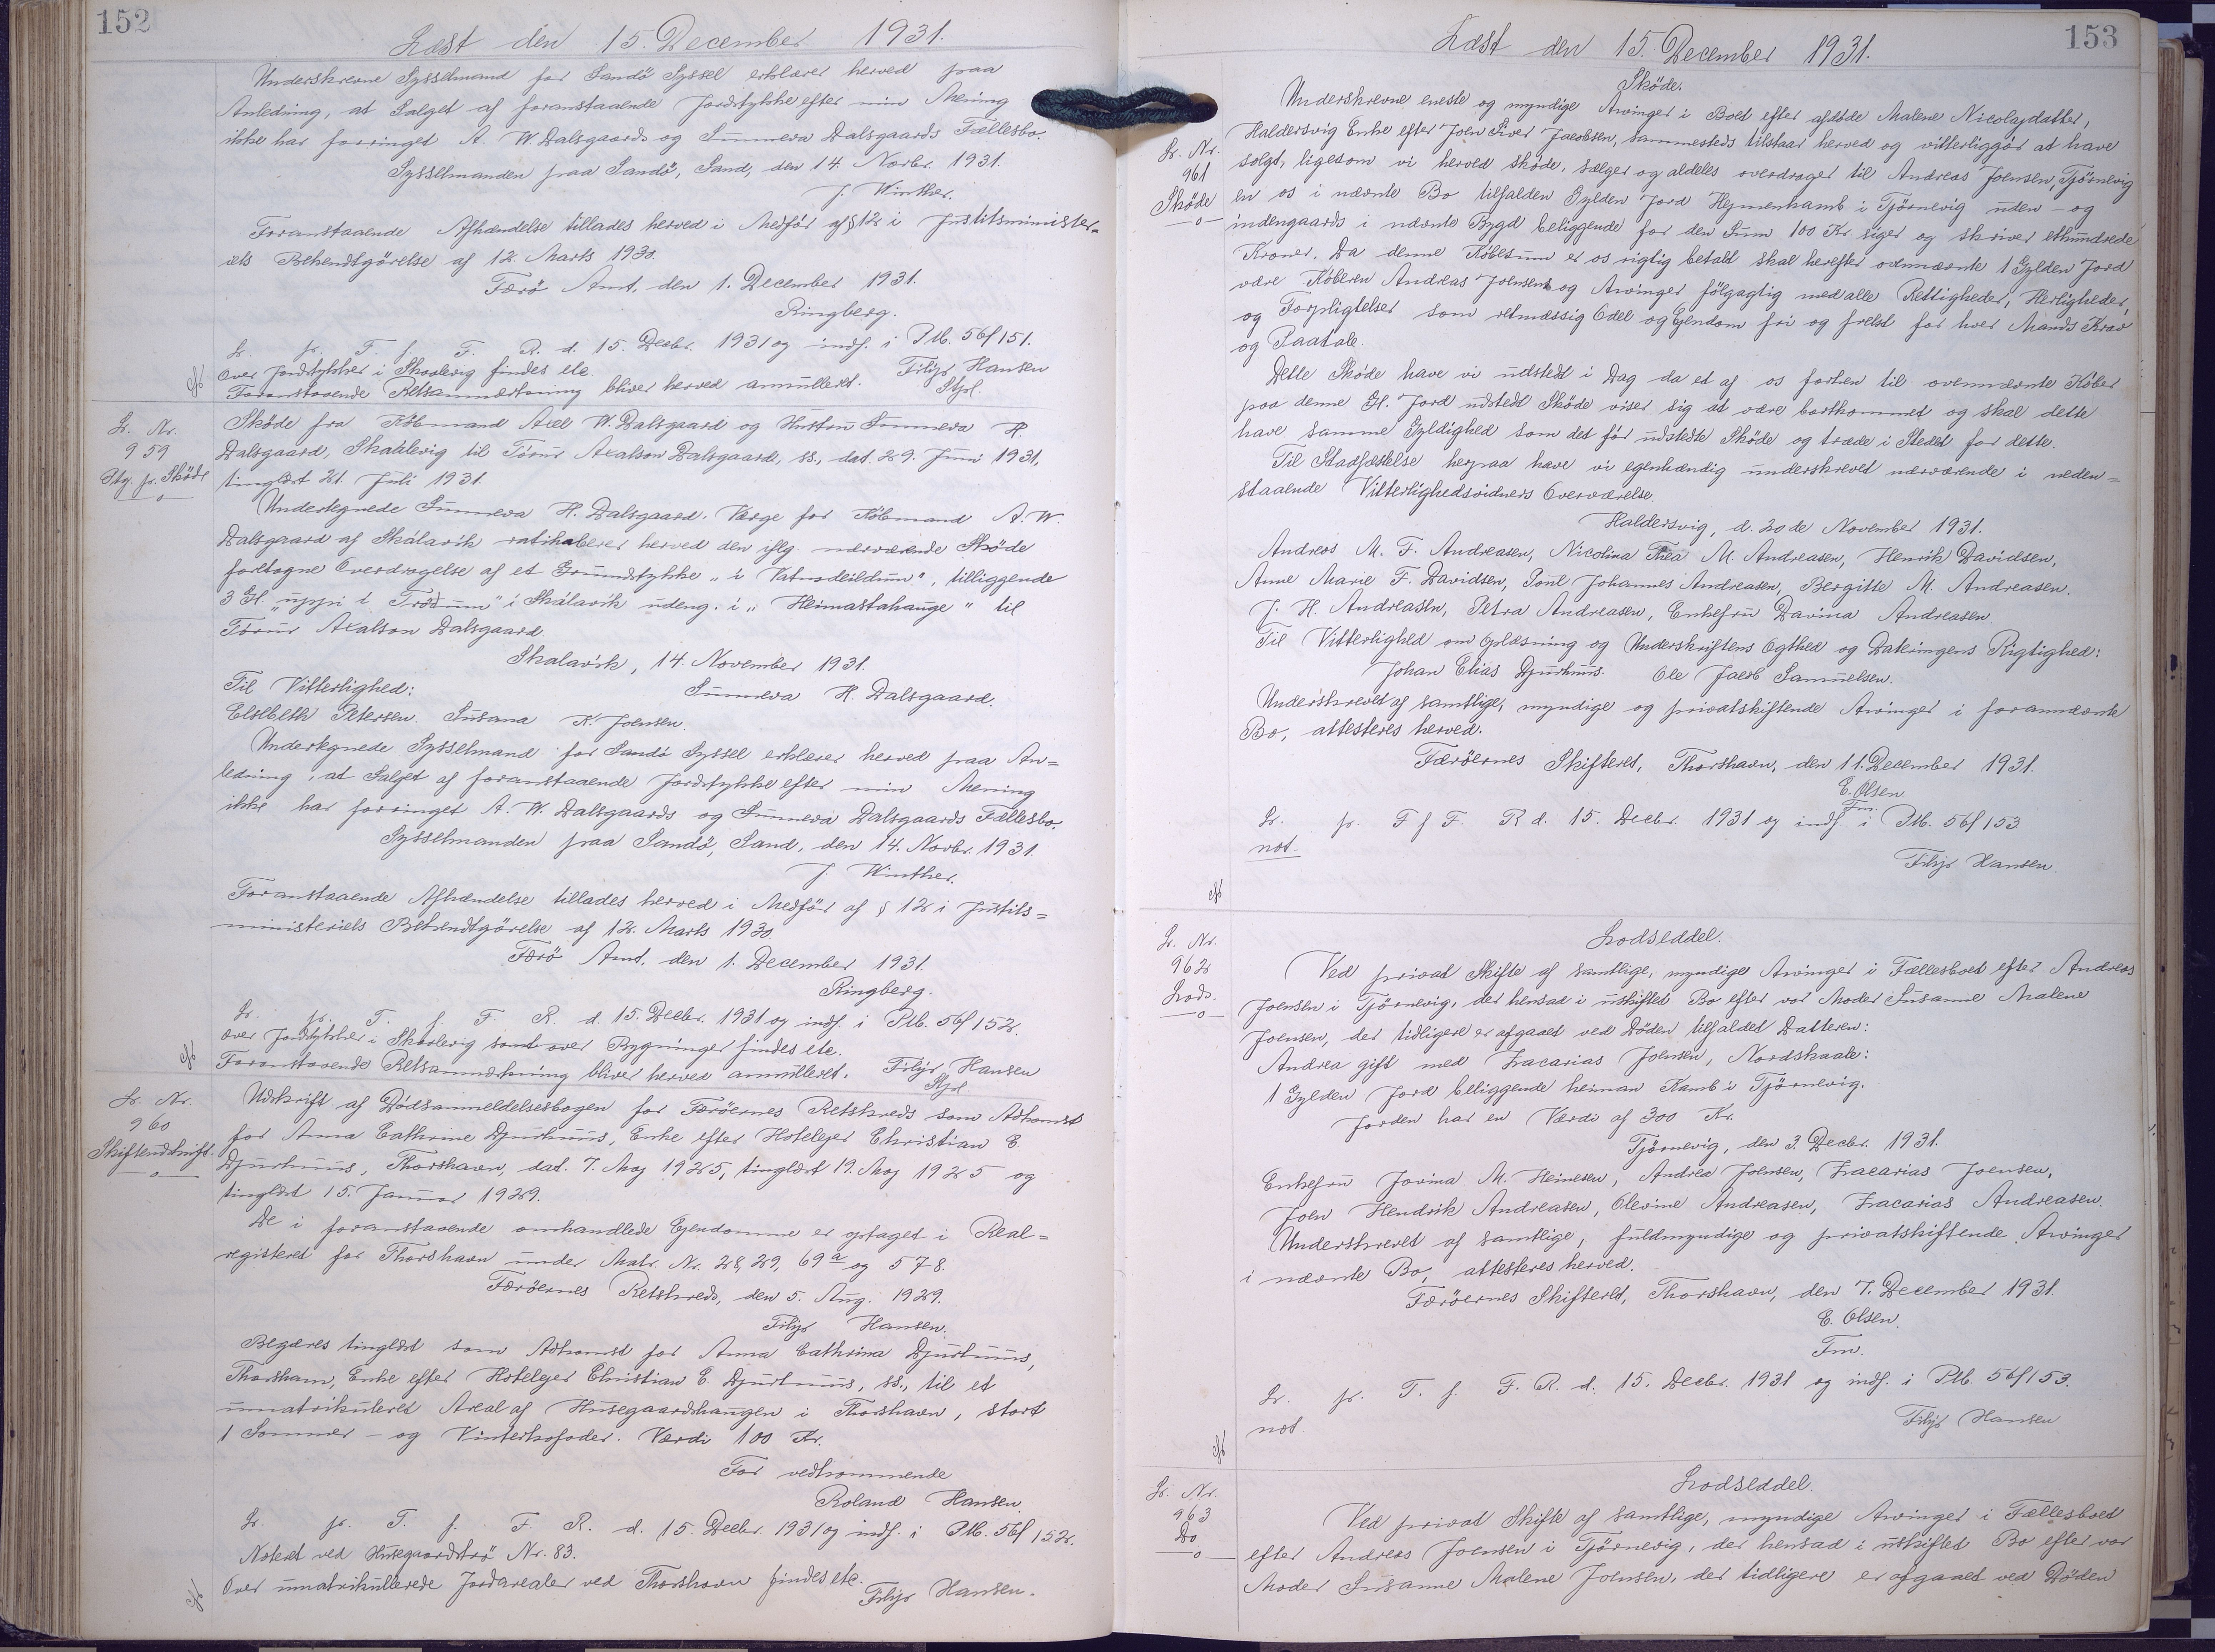 152
Læst den 15. December 1931.
Underskrevne Sysselmand for Sandö Syssel erklærer herved paa
Anledning, at Salget af foranstaaende Jordstykke efter min Mening
ikke har forringet A. W. Dalsgaards og Sunneva Dalsgaards Fællesbo.
Sysselmanden paa Sandö, Sand, den 14. Novbr. 1931.
J. Winther.
Foranstaaende Afhændelse tillades herved i Medför af § 12 i Justitsminister=
iets Bekendtgörelse af 12. Marts 1930.
Færö Amt, den 1. December 1931.
Ringberg.
Lr. fr. T. f. F. R. d. 15. Decbr. 1931 og indf. i Ptb. 56f 151.
Over Jordstykker i Skaalevig findes etc.
Filip Hansen
Foranstaaende Retsanmærkning bliver herved annulleret.
Stfml.
Lr. Nr.
959
Ptg. fr. Sköde
Sköde fra Köbmand Axel W. Dalsgaard og Hustru Sunneva H.
Dalsgaard, Skaalevig til Tórur Axalson Dalsgaard, ss., dat. 29. Juni 1931,
tinglæst 21. Juli 1931.
Undertegnede Sunneva H. Dalsgaard, Værge for Köbmand A. W.
Dalsgaard af Skálavík ratihaberer herved den iflg. nærværende Sköde
foretagne Overdragelse af et Grundstykke "í Vatnsdeildum", tilliggende
3 Gl. "uppi í Tröðum" i Skálavík udeng. i "Heimastahauge" til
Tórur Axalson Dalsgaard.
Skalavík, 14. November 1931.
Til Vitterlighed:
Sunneva H. Dalsgaard.
Elsebeth Petersen. Susana K. Joensen.
Undertegnede Sysselmand for Sandö Syssel erklærer herved paa An=
ledning, at Salget af foranstaaende Jordstykke efter min Mening
ikke har forringet A. W. Dalsgaards og Sunneva Dalsgaards Fællesbo.
Sysselmanden paa Sandö, Sand, den 14. Novbr. 1931.
J. Winther.
Foranstaaende Afhændelse tillades herved i Medför af § 12 i Justits=
ministeriets Bekendtgörelse af 12. Marts 1930
Færö Amt, den 1. December 1931.
Ringberg.
Lr. fr. T. f. F. R. d. 15. Decbr. 1931 og indf. i Ptb. 56f 152.
Over Jordstykker i Skaalevig samt over Bygninger findes etc.
Foranstaaende Retsanmærkning bliver herved annulleret.
Filip Hansen
Lr. Nr.
960
Skifteudskrift.
Udskrift af Dödsanmeldelsesbogen for Færöernes Retskreds som Adkomst
for Anna Cathrine Djurhuus, Enke efter Hotelejer Christian E.
Djurhuus, Thorshavn, dat. 7. Maj 1925, tinglæst 19. Maj 1925 og
tinglæst 15. Januar 1929.
De i foranstaaende omhandlede Ejendomme er optaget i Real=
registeret for Thorshavn under Matr. Nr. 28, 29, 69a og 578.
Færöernes Retskreds, den 5. Aug. 1929.
Filip Hansen.
Begæres tinglæst som Adkomst for Anna Cathrina Djurhuus,
Thorshavn, Enke efter Hotelejer Christian E. Djurhuus, ss., til et
umatrikuleret Areal af Husegaardshaugen i Thorshavn, stort
1 Sommer- og Vinterkofoder. Værdi 100 Kr.
For vedkommende
Roland Hansen
Lr. fr. T. f. F. R. d. 15. Decbr. 1931 og indf. i Ptb. 56f 152.
Noteret ved Husegaardströ Nr. 83.
Over umatrikullerede Jordarealer ved Thorshavn findes etc.
Filip Hansen.
153
Læst den 15. December 1931.
Sköde.
Lr. Nr.
961
Sköde
Underskrevne eneste og myndige Arvinger i Boet efter afdöde Malene Nicolajdatter,
Haldersvig Enke efter Joen Sivar Jacobsen, sammesteds tilstaar herved og vitterliggör at have
solgt, ligesom vi herved sköde, sælger og aldeles overdrager til Andreas Joensen, Tjörnevig
en os i nævnte Bo tilfalden Gylden Jord Hejmenkamb i Tjörnevig uden- og
indengaards i nævnte Bygd beliggende for den Sum 100 Kr. siger og skriver ethundrede
Kroner. Da denne Köbesum er os rigtig betalt skal herefter ovennævnte 1 Gylden Jord
være Köberen Andreas Joensen og Arvinger fölgagtig med alle Rettigheder, Herligheder,
og Forpligtelser som retmæssig Odel og Ejendom fri og frelst for hver Mands Krav
og Paatale.
Dette Sköde have vi udstedt i Dag da et af os forhen til ovennævnte Köber
paa denne Gl. Jord udstedt Sköde viser sig at være bortkommet og skal dette
have samme Gyldighed som det för udstedte Sköde og træde i Stedet for dette.
Til Stadfæstelse herpaa have vi egenhændig underskrevet nærværende i neden=
staaende Vitterlighedsvidners Overværelse.
Haldersvig, d. 20de November 1931.
Andreas M. F. Andreasen, Nicolina Thea M. Andreasen, Henrik Davidsen,
Anne Marie F. Davidsen, Poul Johannes Andreasen, Bergitte M. Andreasen.
J. H. Andreasen, Petra Andreasen, Enkefru Davina Andreasen.
Til Vitterlighed om Oplæsning og Underskriftens Ægthed og Dateringens Rigtighed:
Johan Elias Djurhuus. Ole Jacob Samuelsen.
Underskrevet af samtlige, myndige og privatskiftende Arvinger i forannævnte
Bo, attesteres herved.
Færöernes Skifteret, Thorshavn, den 11. December 1931.
E. Olsen
Fm.
Lr. fr. T f F. R d. 15. Decbr. 1931 og indf. i Ptb. 56f 153
not.
Filip Hansen.
Lr. Nr.
962
Lods.
Lodseddel.
Ved privat Skifte af samtlige, myndige Arvinger i Fællesboet efter Andreas
Joensen i Tjörnevig, der hensad i uskiftet Bo efter vor Moder Susanne Malene
Joensen, der tidligere er afgaaet ved Döden tilfaldet Datteren:
Andrea gift med Zacarias Joensen, Nordskaale:
1 Gylden Jord beliggende heiman Kamb i Tjörnevig.
Jorden har en Værdi af 300 Kr.
Tjørnevig, den 3. Decbr. 1931.
Enkefru Jovina M. Heinesen, Andrea Joensen, Zacarias Joensen,
Joen Hendrik Andreasen, Olevine Andreasen, Zacarias Andreasen.
Underskrevet af samtlige, fuldmyndige og privatskiftende Arvinger
i nævnte Bo, attesteres herved.
Færöernes Skifteret, Thorshavn, den 7. December 1931.
E. Olsen.
Fm.
Lr. fr. T. f. F. R. d. 15. Decbr. 1931 og indf. i Ptb. 56f 153.
not.
Filip Hansen
Lr. Nr.
963
Do
Lodseddel.
Ved privat Skifte af samtlige, myndige Arvinger i Fællesboet
efter Andreas Joensen i Tjörnevig, der hensad i uskiftet Bo efter vor
Moder Susanne Malene Joensen, der tidligere er afgaaet ved Döden